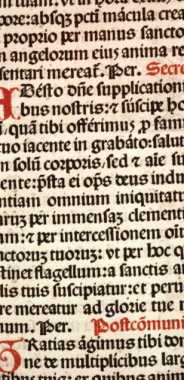 pore: absq3 pcti macula crea
proprio per manus sancto
n angelorum eius anima re
sentari mereat. Per. Secre
ADesto dñe supplication
bus nostris: ⁊ suscipe ho
. quã tibi offerimus ꝓ fam
tuo iacente in grabato: salut
n solũ corporis, sed ⁊ aĩe su
ente: p̃sta ei op̃s deus indu
ntiam omnium iniquitatu
arũ per immensaʒ clementi
um: ⁊ per intercessionem oĩu
nctorum tuorum: vt per hoc q
stinet flagellum: a sanctis a
lis tuis suscipiatur: et peru
re mereatur ad glorie tue r
num. Per. Postcõmuni
GRatias agimus tibi do
ne de multiplicibus larg